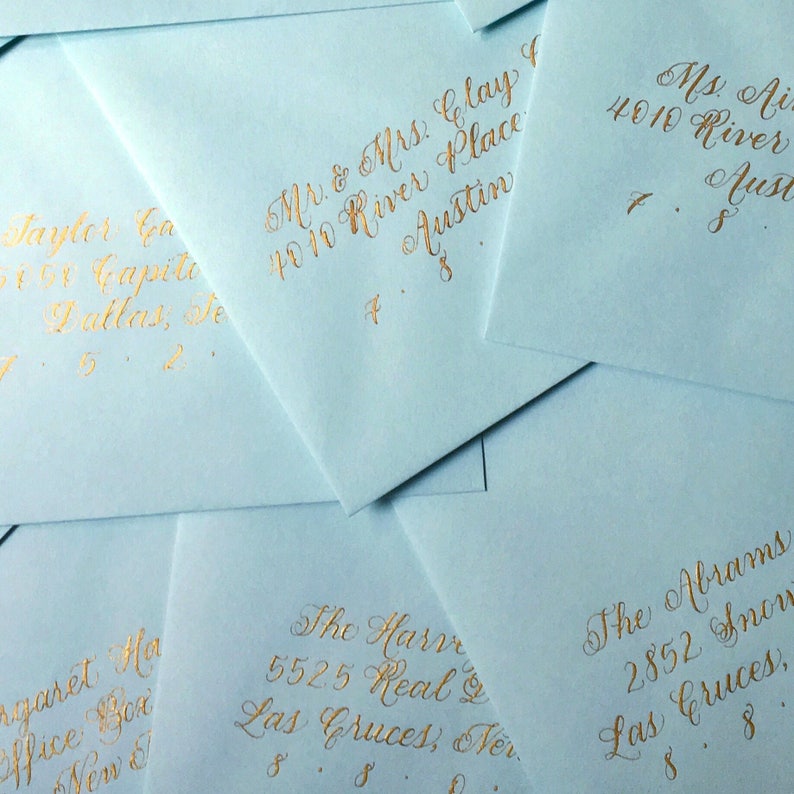 Taylor Ca
5050 Capito
Dallas, Te
7 · 5 · 2 ·
Mr. & Mrs. Clay C
4010 River Place
Austin
7 · 8 ·
Ms. Ai
4010 River
Aust
7 · 8 ·
rgaret Ha
Office Box
New
The Harve
5525 Real D
Las Cruces, New
8 · 8 · 0 ·
The Abrams
2852 Snow
Las Cruces,
8 · 8 ·